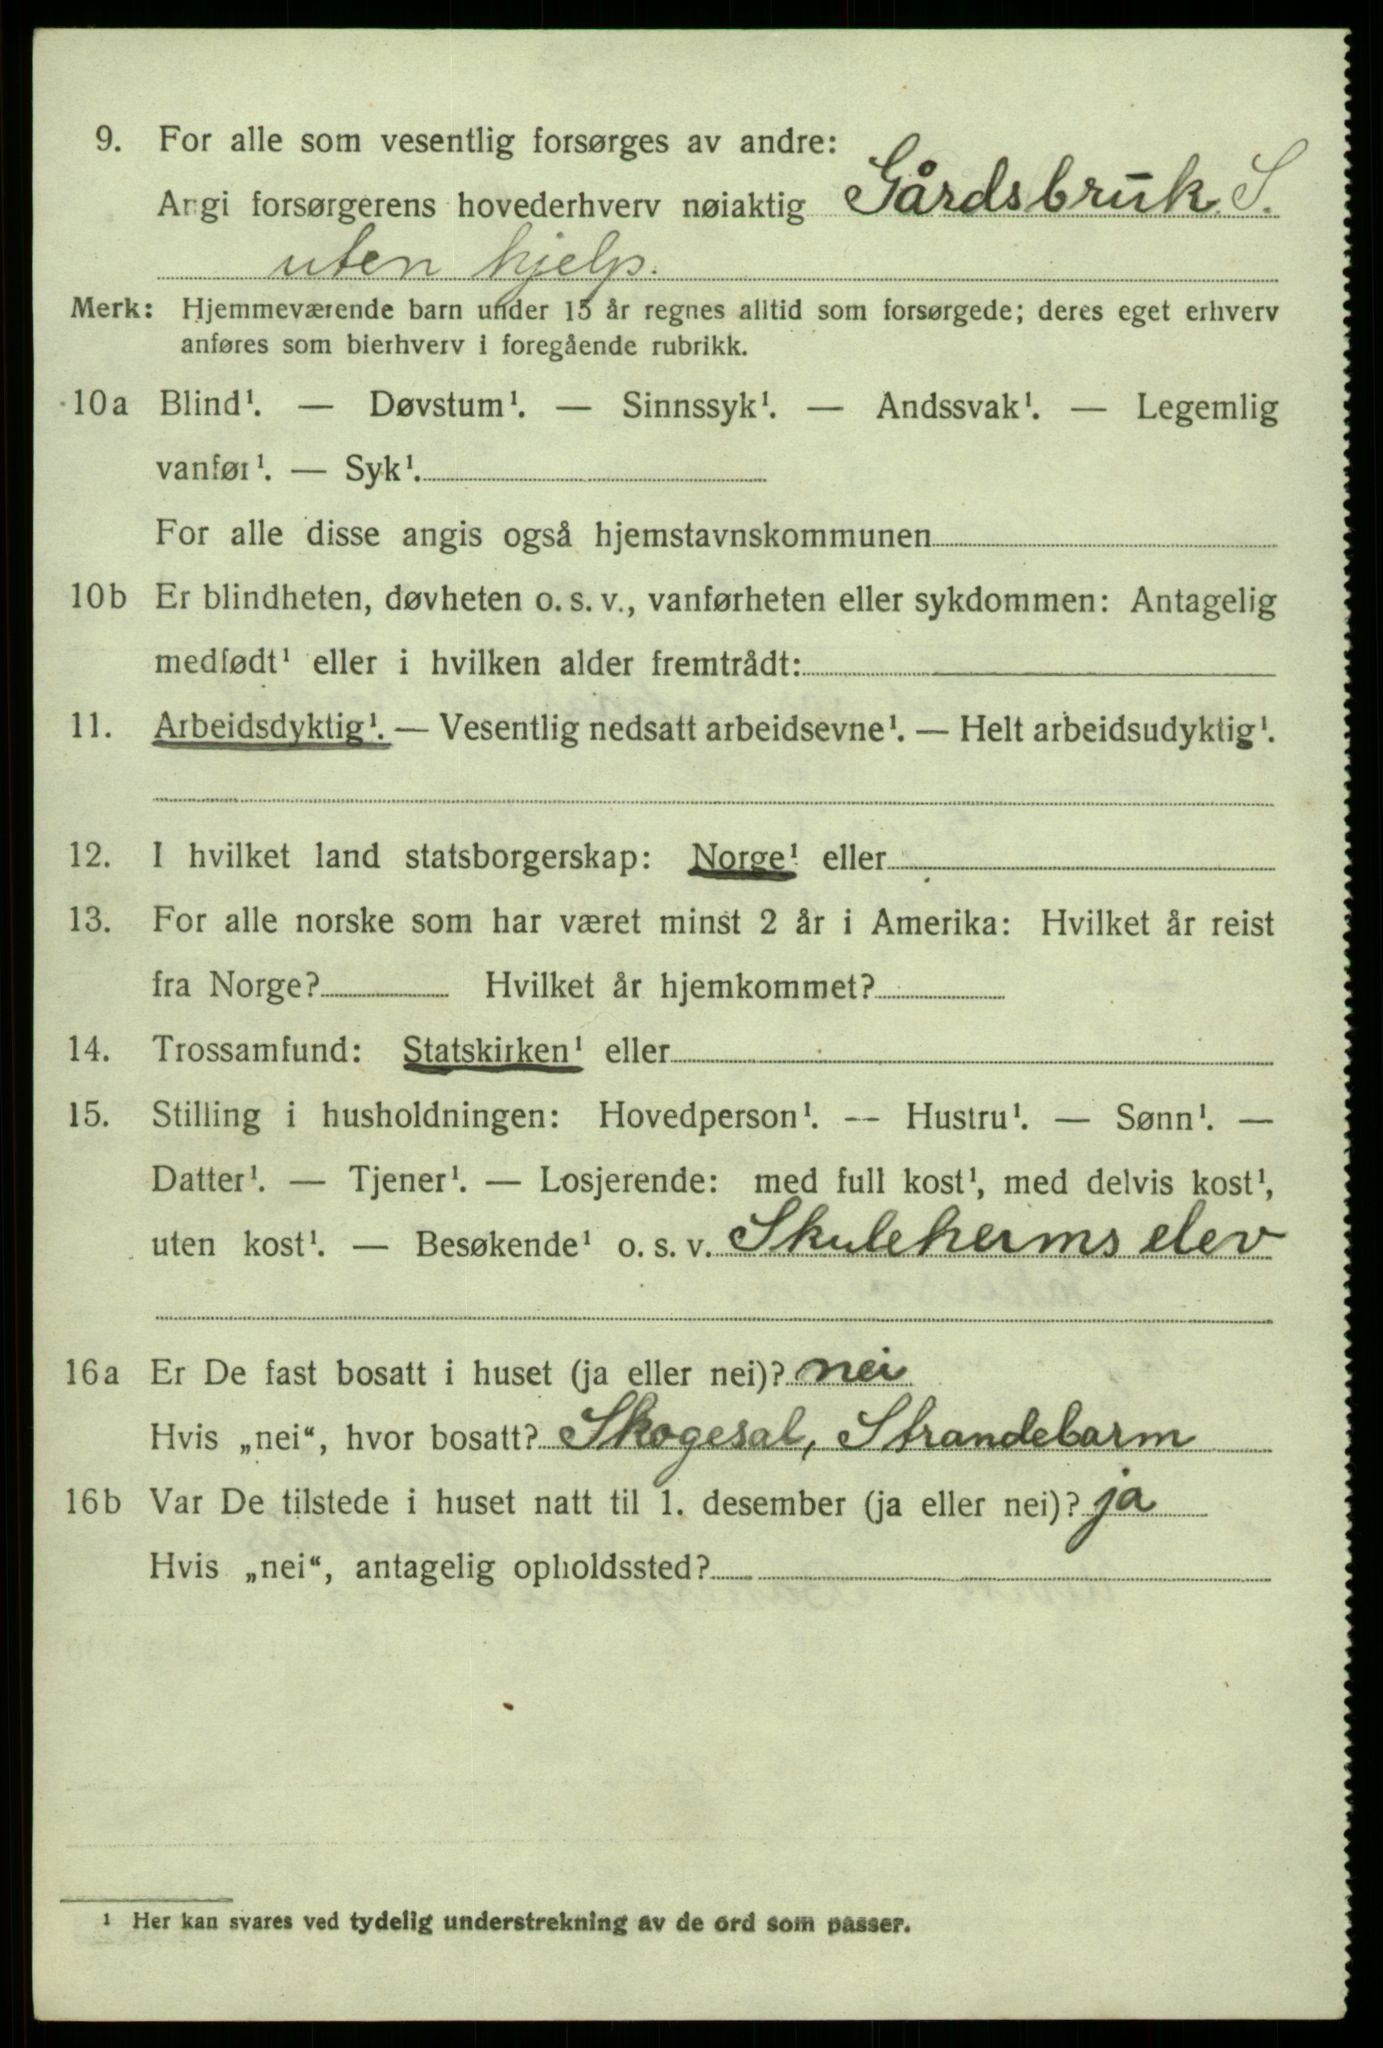 9. For alle som vesentlig forsørges av andre:
Angi forsørgerens hovederhverv nøiaktig Gårdsbruk. S.
uten hjelp.
Merk: Hjemmeværende barn under 15 år regnes alltid som forsørgede; deres eget erhverv
anføres som bierhverv i foregående rubrikk.
10a Blind¹. — Døvstum¹. — Sinnssyk¹. — Andssvak¹. — Legemlig
vanfør¹. — Syk¹.
For alle disse angis også hjemstavnskommunen
10b Er blindheten, døvheten o. s. v., vanførheten eller sykdommen: Antagelig
medfødt¹ eller i hvilken alder fremtrådt:
11. Arbeidsdyktig¹. — Vesentlig nedsatt arbeidsevne¹. — Helt arbeidsudyktig¹.
12. I hvilket land statsborgerskap: Norge¹ eller
13. For alle norske som har været minst 2 år i Amerika: Hvilket år reist
fra Norge? Hvilket år hjemkommet?
14. Trossamfund: Statskirken¹ eller
15. Stilling i husholdningen: Hovedperson¹. — Hustru¹. — Sønn¹. —
Datter¹. — Tjener¹. — Losjerende: med full kost¹, med delvis kost¹,
uten kost¹. — Besøkende¹ o. s. v. Skuleheims elev
16a Er De fast bosatt i huset (ja eller nei)? nei
Hvis „nei“, hvor bosatt? Skogesal, Strandebarm
16b Var De tilstede i huset natt til 1. desember (ja eller nei)? ja
Hvis „nei“, antagelig opholdssted?
¹ Her kan svares ved tydelig understrekning av de ord som passer.